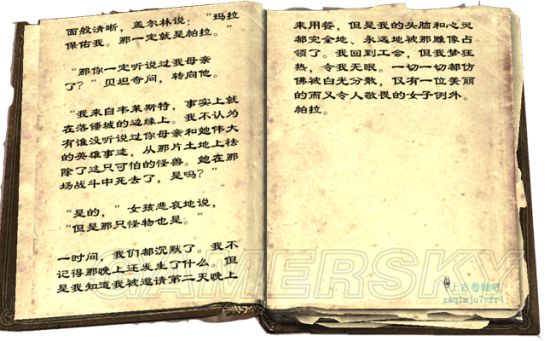 面般清晰，盖尔林说：“玛拉
保佑我。那一定就是帕拉。”
“那你一定听说过我母亲
了？”贝坦奇问，转向他。
“我来自韦莱斯特，事实上就
在落锤城的边缘上。我不认为
有谁没听说过你母亲和她伟大
的英雄事迹，从那片土地上祛
除了这只可怕的怪兽。她在那
场战斗中死去了，是吗？”
“是的，”女孩悲哀地说，
“但是那只怪物也是。”
一时间，我们都沉默了。我不
记得那晚上还发生了什么。但
是我知道我被邀请第二天晚上
来用餐，但是我的头脑和心灵
都完全地、永远地被那雕像占
领了。我回到工会，但我梦狂
热，令我无眠。一切一切都仿
佛被白光分散，仅有一位美丽
的而又令人敬畏的女子例外。
帕拉。
GAMERSKY
上古卷轴吧
zsq1mju7vfr4